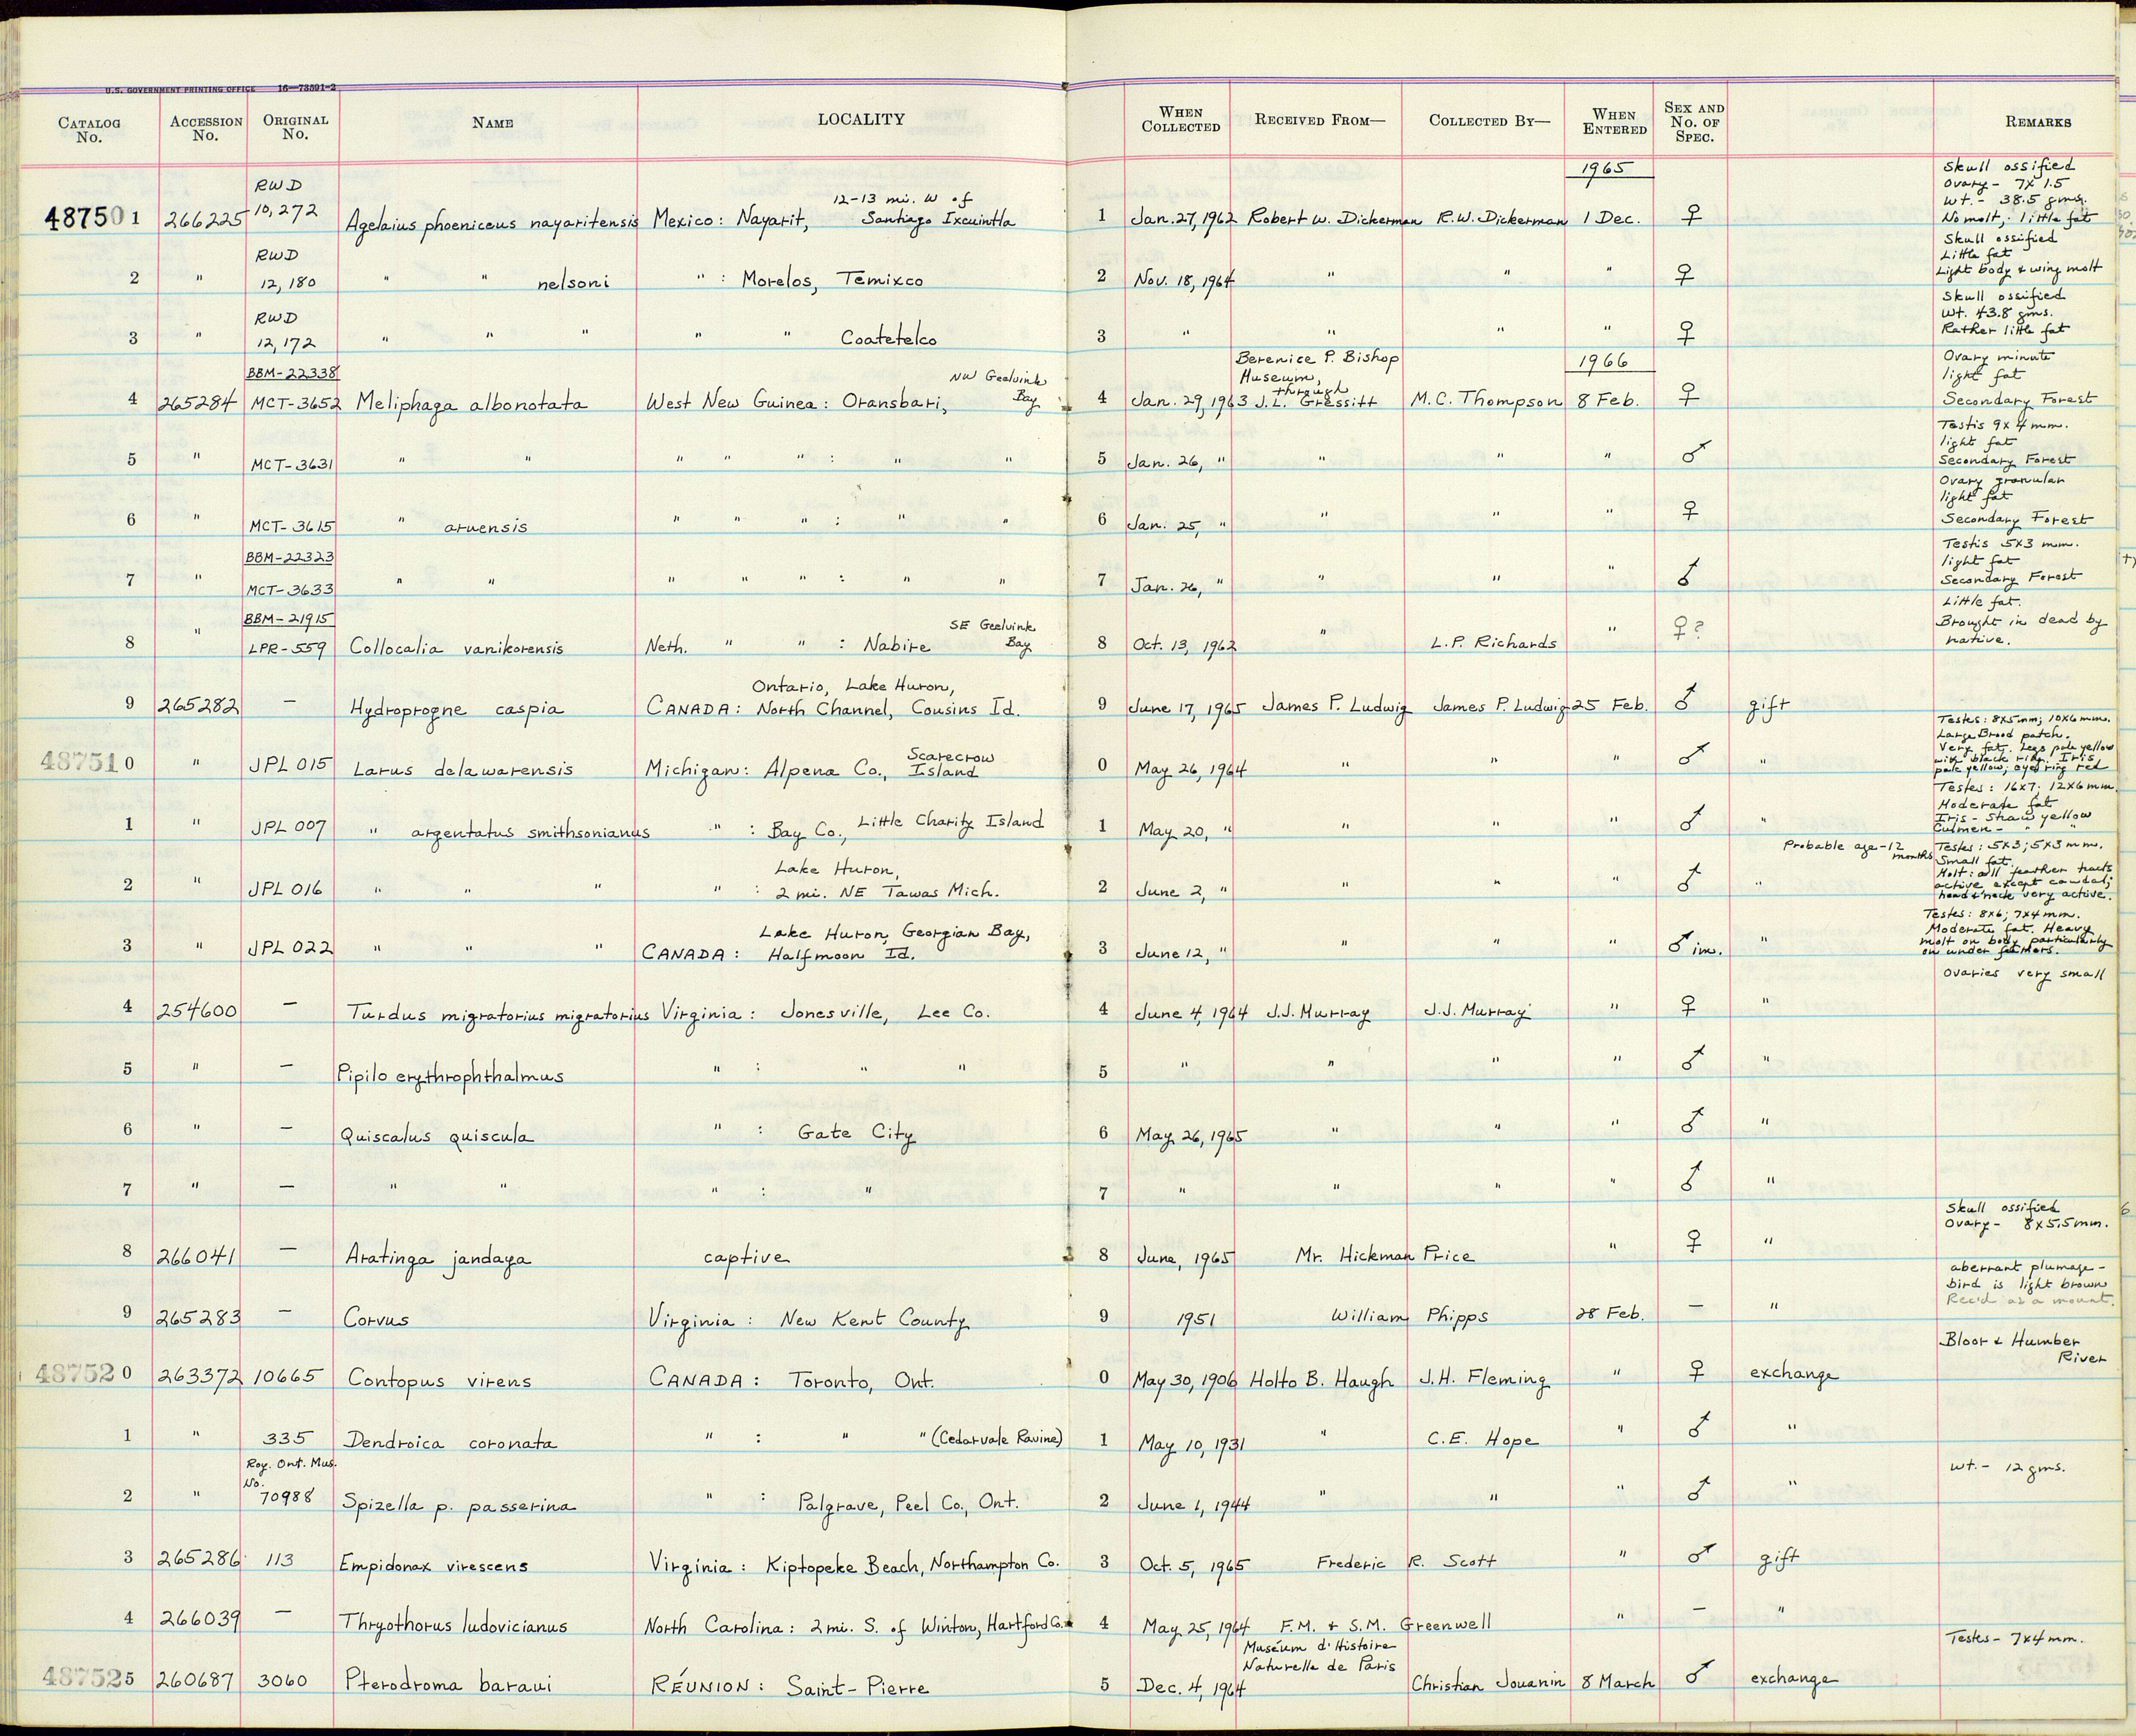 U.S. GOVERNMENT PRINTING OFFICE 16—73591-2
CATALOG No. ACCESSION No. ORIGINAL No. NAME LOCALITY WHEN COLLECTED RECEIVED FROM— COLLECTED BY— WHEN ENTERED SEX AND No. OF SPEC. REMARKS
1965
487501 266225 RWD 10,272 Agelaius phoeniceus nayaritensis Mexico: Nayarit, 12-13 mi. W of Santiago Ixcuintla 1 Jan. 27, 1962 Robert W. Dickerman R.W. Dickerman 1 Dec. ♀ Skull ossified Ovary- 7x1.5 Wt.- 38.5 gms. No molt, little fat
2 " RWD 12,180 " " nelsoni " : Morelos, Temixco 2 Nov. 18, 1964 " " " ♀ Skull ossified Little fat Light body & wing molt
3 " RWD 12,172 " " " " " Coatetelco 3 " " " " ♀ Skull ossified Wt. 43.8 gms. Rather little fat
1966
4 265284 BBM-22338 MCT-3652 Meliphaga albonotata West New Guinea: Oransbari, NW Geelvink Bay 4 Jan. 29, 1963 Berenice P. Bishop Museum, through J.L. Gressitt M.C. Thompson 8 Feb. ♀ Ovary minute light fat Secondary Forest
5 " MCT-3631 " " " " " : " " 5 Jan. 26, " " " " ♂ Testis 9x4mm. light fat Secondary Forest
6 " MCT-3615 " aruensis " " " : " " 6 Jan. 25, " " " " ♀ Ovary granular light fat Secondary Forest
7 " BBM-22323 MCT-3633 " " " " " : " " 7 Jan. 26, " " " " ♂ Testis 5x3 mm. light fat Secondary Forest
8 " BBM-21915 LPR-559 Collocalia vanikorensis Neth. " " : Nabire SE Geelvink Bay 8 Oct. 13, 1962 " L.P. Richards " ♀? Little fat. Brought in dead by native.
9 265282 — Hydroprogne caspia CANADA: Ontario, Lake Huron, North Channel, Cousins Id. 9 June 17, 1965 James P. Ludwig James P. Ludwig 25 Feb. ♂ gift
487510 " JPL 015 Larus delawarensis Michigan: Alpena Co., Scarecrow Island 0 May 26, 1964 " " " ♂ " Testes: 8x5mm; 10x6mm. Large Brood patch. Very fat. Legs pale yellow with black ring. Iris, pale yellow; eye ring red
1 " JPL 007 " argentatus smithsonianus " : Bay Co., Little Charity Island 1 May 20, " " " " ♂ " Testes: 16x7; 12x6mm. Moderate fat Iris- Straw yellow Culmen- " "
2 " JPL 016 " " " " : Lake Huron, 2 mi. NE Tawas Mich. 2 June 2, " " " " ♂ " Probable age-12 months Testes: 5x3; 5x3mm. Small fat. Molt: all feather tracts active except caudal; head & neck very active.
3 " JPL 022 " " " CANADA: Lake Huron, Georgian Bay, Halfmoon Id. 3 June 12, " " " " ♂ im. " Testes: 8x6; 7x4mm. Moderate fat. Heavy molt on body particularly on under feathers.
4 254600 — Turdus migratorius migratorius Virginia: Jonesville, Lee Co. 4 June 4, 1964 J.J. Murray J.J. Murray " ♀ " Ovaries very small
5 " — Pipilo erythrophthalmus " : " " 5 " " " " ♂ "
6 " — Quiscalus quiscula " : Gate City 6 May 26, 1965 " " " ♂ "
7 " — " " " : " 7 " " " " ♂ "
8 266041 — Aratinga jandaya captive 8 June, 1965 Mr. Hickman Price " ♀ " Skull ossified Ovary- 8x5.5mm.
9 265283 — Corvus Virginia: New Kent County 9 1951 William Phipps 28 Feb. — " aberrant plumage- bird is light brown Rec'd as a mount.
487520 263372 10665 Contopus virens CANADA: Toronto, Ont. 0 May 30, 1906 Holto B. Haugh J.H. Fleming " ♀ exchange Bloor & Humber River
1 " 335 Dendroica coronata " : " " (Cedarvale Ravine) 1 May 10, 1931 " C.E. Hope " ♂ "
2 " Roy. Ont. Mus. No. 70988 Spizella p. passerina " : Palgrave, Peel Co., Ont. 2 June 1, 1944 " " " ♂ " Wt.- 12 gms.
3 265286 113 Empidonax virescens Virginia: Kiptopeke Beach, Northampton Co. 3 Oct. 5, 1965 Frederic R. Scott " ♂ gift
4 266039 — Thryothorus ludovicianus North Carolina: 2 mi. S. of Winton, Hartford Co. 4 May 25, 1964 F.M. & S.M. Greenwell " — "
487525 260687 3060 Pterodroma baraui RÉUNION: Saint-Pierre 5 Dec. 4, 1964 Muséum d'Histoire Naturelle de Paris Christian Jouanin 8 March ♂ exchange Testes- 7x4mm.